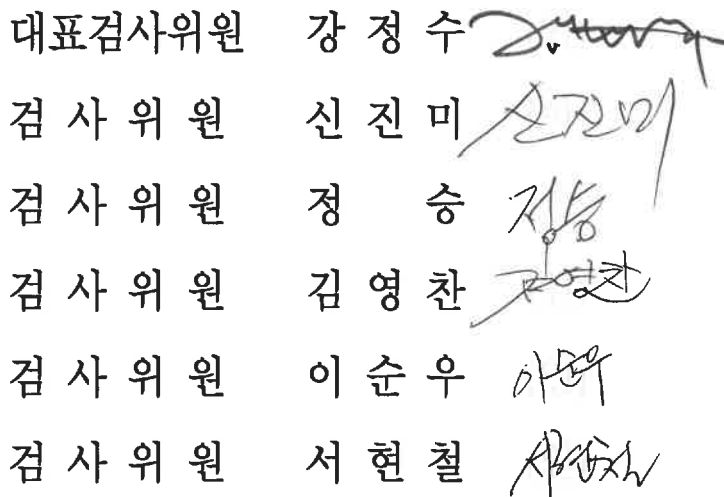 대표검사위원 강정수
검사위원 신진미 신진미
검사위원 정 승 정승
검사위원 김영찬 김영찬
검사위원 이순우 이순우
검사위원 서현철